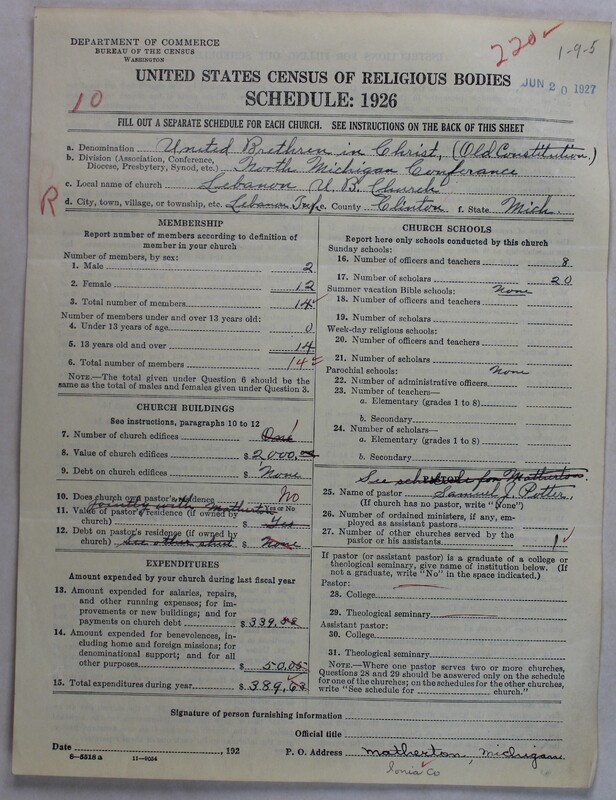 DEPARTMENT OF COMMERCE
BUREAU OF THE CENSUS
WASHINGTON
220
1-9-5
JUN 20 1927
10
UNITED STATES CENSUS OF RELIGIOUS BODIES
SCHEDULE: 1926
FILL OUT A SEPARATE SCHEDULE FOR EACH CHURCH. SEE INSTRUCTIONS ON THE BACK OF THIS SHEET
a. Denomination United Brethren in Christ, (Old Constitution.)
b. Division (Association, Conference, Diocese, Presbytery, Synod, etc.) North Michigan Conferance
c. Local name of church Lebanon U B. Church
R
d. City, town, village, or township, etc. Lebanon Twp. e. County Clinton f. State Mich
MEMBERSHIP
Report number of members according to definition of
member in your church
Number of members, by sex:
1. Male 2
2. Female 12
3. Total number of members 14
Number of members under and over 13 years old:
4. Under 13 years of age 0
5. 13 years old and over 14
6. Total number of members 14
NOTE.—The total given under Question 6 should be the
same as the total of males and females given under Question 3.
CHURCH BUILDINGS
See instructions, paragraphs 10 to 12
7. Number of church edifices One 1
8. Value of church edifices $ 2000.
9. Debt on church edifices $ None
10. Does church own pastor's residence No
Yes or No
Jointly with Matherton
11. Value of pastor's residence (if owned by
church) $ Yes
12. Debt on pastor's residence (if owned by
church) See other sheet $ None
EXPENDITURES
Amount expended by your church during last fiscal year
13. Amount expended for salaries, repairs,
and other running expenses; for im-
provements or new buildings; and for
payments on church debt $ 339.
14. Amount expended for benevolences, in-
cluding home and foreign missions; for
denominational support; and for all
other purposes $ 50.
15. Total expenditures during year $ 389.
CHURCH SCHOOLS
Report here only schools conducted by this church
Sunday schools:
16. Number of officers and teachers 8
17. Number of scholars 20
Summer vacation Bible schools: None
18. Number of officers and teachers
19. Number of scholars
Week-day religious schools:
20. Number of officers and teachers
21. Number of scholars
Parochial schools: None
22. Number of administrative officers
23. Number of teachers—
a. Elementary (grades 1 to 8)
b. Secondary
24. Number of scholars—
a. Elementary (grades 1 to 8)
b. Secondary
PASTOR
See schedule for Matherton
25. Name of pastor Samuel J. Potter,
(If church has no pastor, write "None")
26. Number of ordained ministers, if any, em-
ployed as assistant pastors
27. Number of other churches served by the
pastor or his assistants 1
If pastor (or assistant pastor) is a graduate of a college or
theological seminary, give name of institution below. (If
not a graduate, write "No" in the space indicated.)
Pastor:
28. College
29. Theological seminary
Assistant pastor:
30. College
31. Theological seminary
NOTE.—Where one pastor serves two or more churches,
Questions 28 and 29 should be answered only on the schedule
for one of the churches; on the schedules for the other churches,
write "See schedule for church."
Signature of person furnishing information
Official title
Date , 192
P. O. Address Matherton, Michigan.
8—5518a 11—9554
Ionia Co